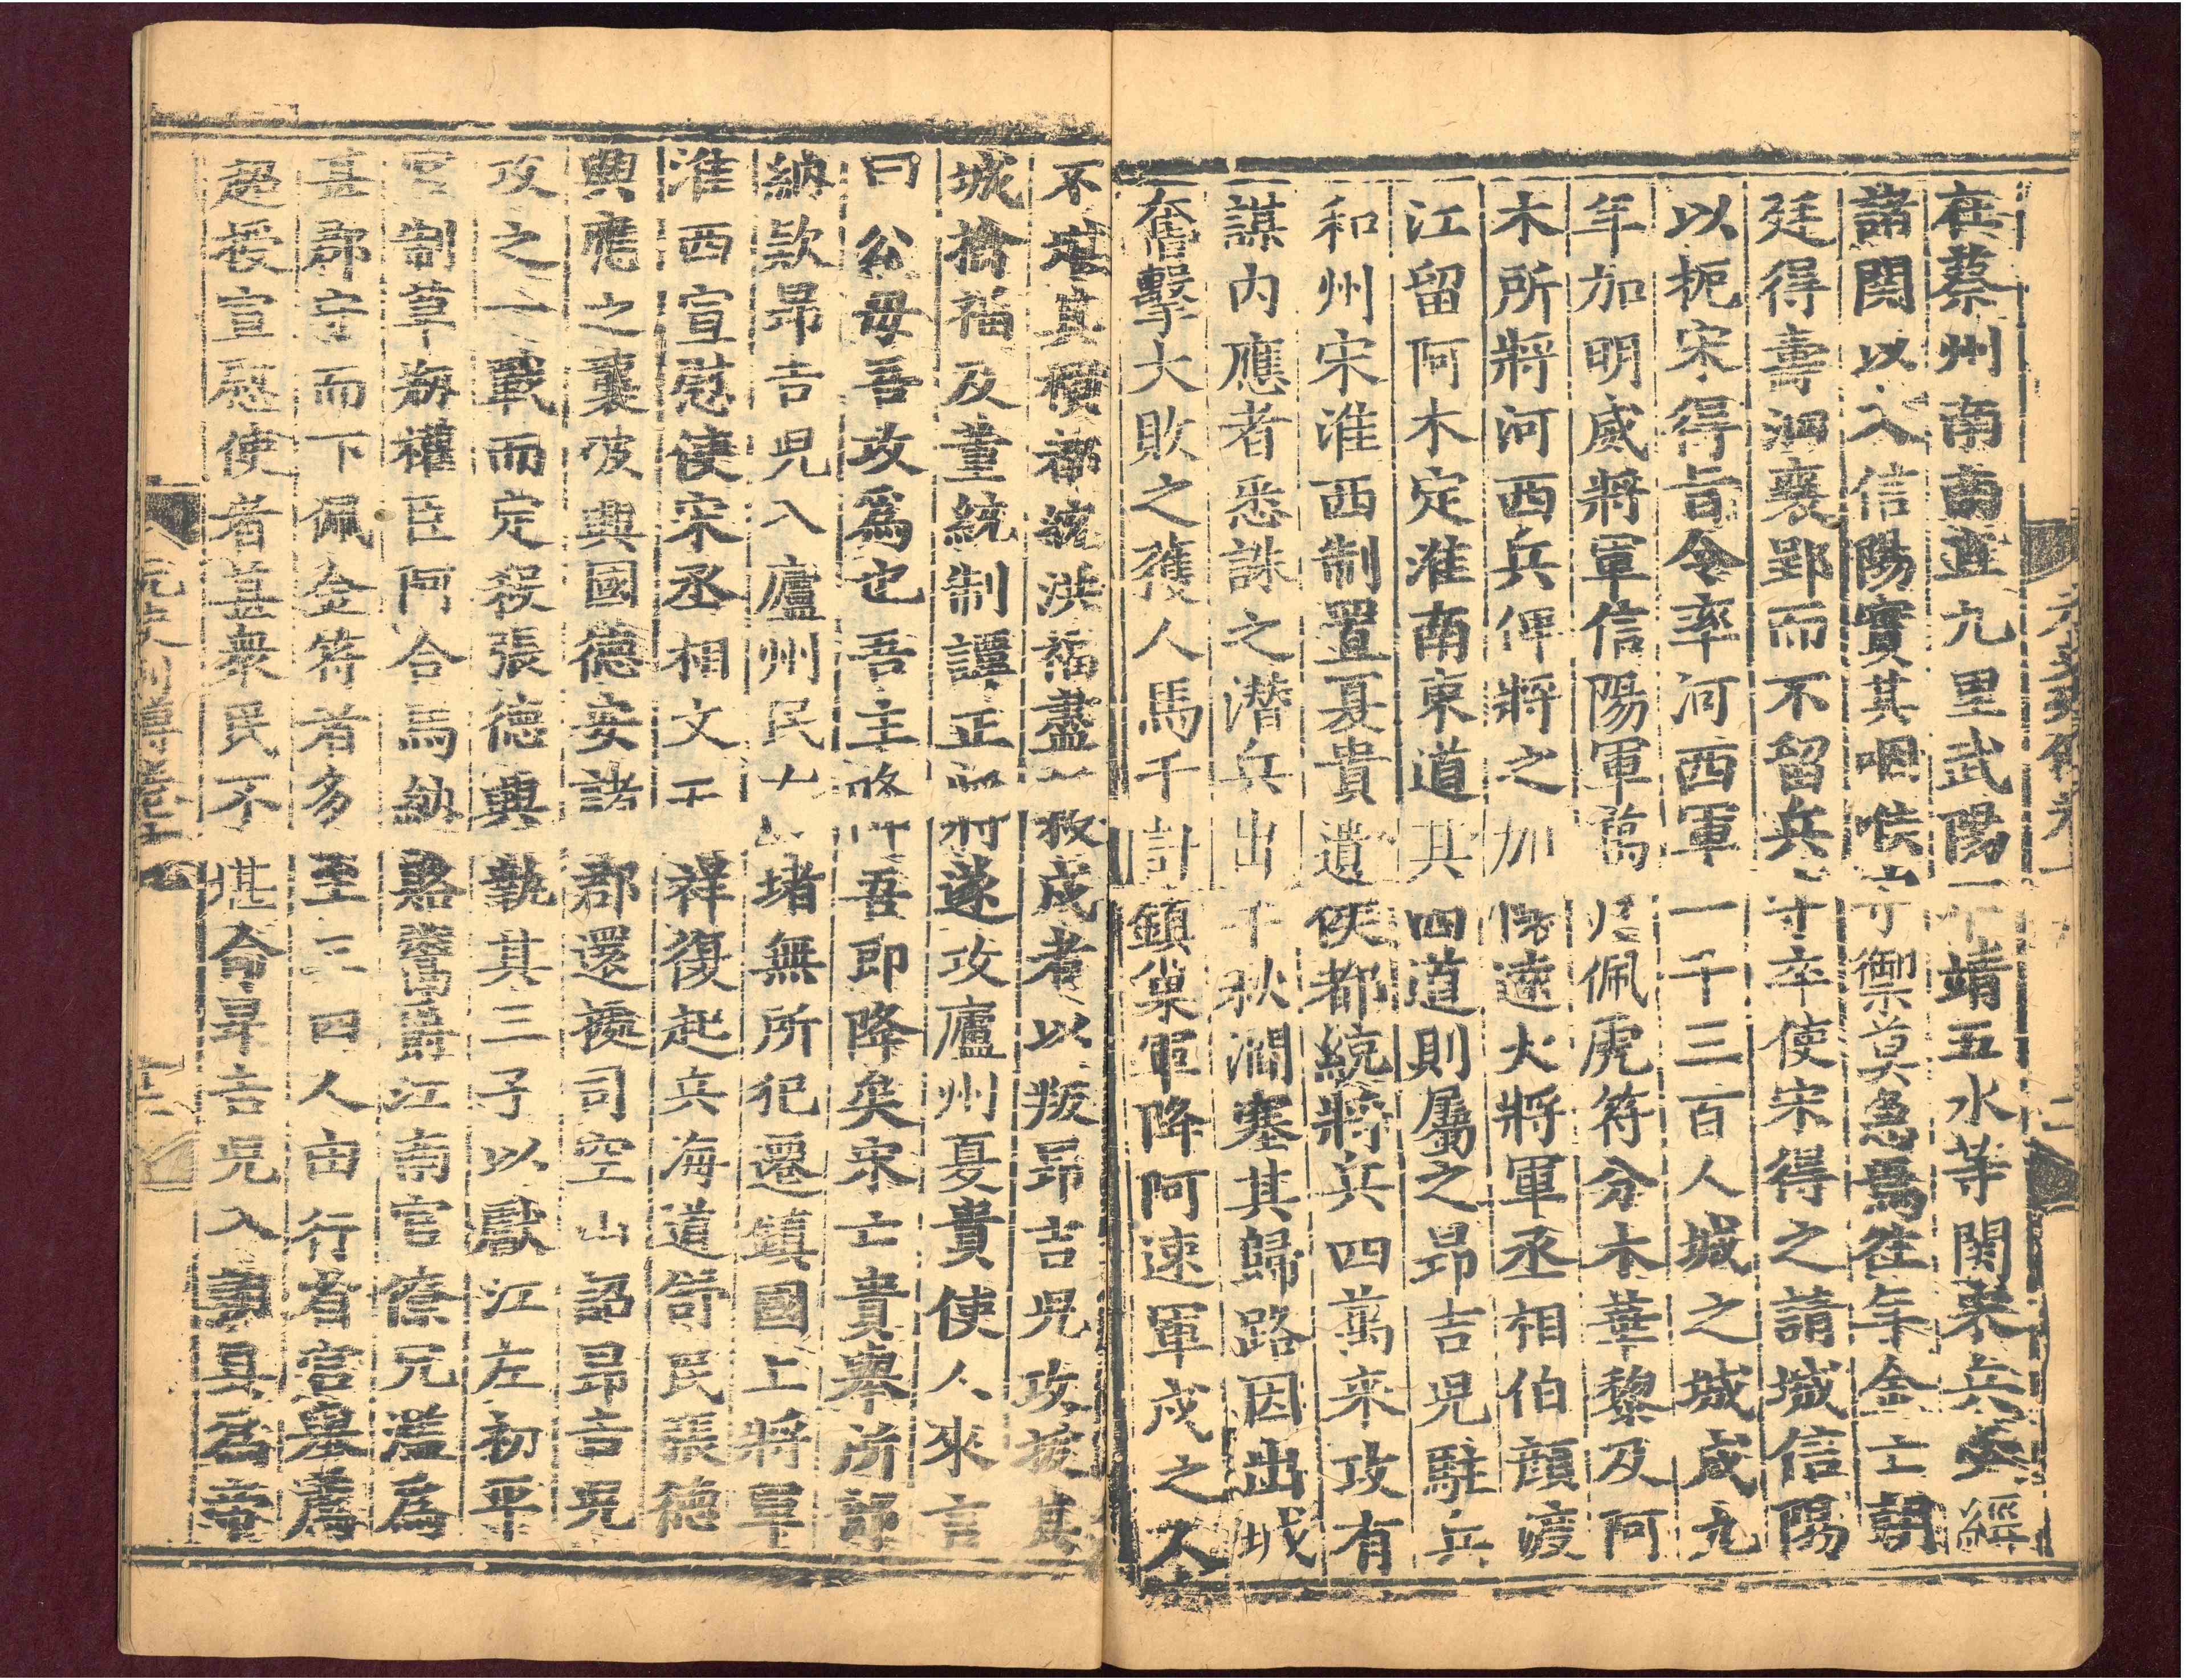 在蔡州南南直九里武陽一靖五水等関宋兵多經
諸関以入信陽實其咽喉守禦莫急焉往年金亡朝
廷得壽泗襄郢而不留兵守卒使宋得之請城信陽
以扼宋得旨令率河西軍一千三百人城之城成九
年加明威將軍信陽軍萬戶佩虎符分木華黎及阿
木所將河西兵俾將之加懷遠大將軍丞相伯顏渡
江留阿木定淮南東道其四道則屬之昂吉兒駐兵
和州宋淮西制置夏貴遺侯都統將兵四萬來攻有
謀內應者悉誅之潛兵出千秋澗塞其歸路因出城
奮擊大敗之獲人馬千計鎮巢軍降阿速軍戍之人
不堪其橫都統洪福盡殺戍者以叛昂吉兒攻拔其
城擒福及董統制譚正將遂攻廬州夏貴使人來言
曰公毋吾攻為也吾主降吾即降矣宋亡貴舉所部
納款昂吉兒入廬州民按堵無所犯遷鎮國上將軍
淮西宣慰使宋丞相文天祥復起兵海道舒民張德
興應之襲破興國德安諸郡還據司空山詔昂吉兒
攻之一戰而定殺張德興執其三子以獻江左初平
官制草刱權臣阿合馬納賂鬻爵江南官僚冗濫為
甚郡守而下佩金符者多至三四人由行省官舉薦
超授宣慰使者甚衆民不堪命昂吉兒入覲具為帝
元史列傳卷十